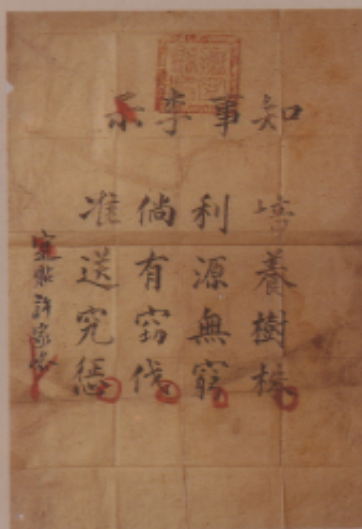 知事李示
培養樹株
利源無窮
倘有窃伐
准送究惩
實貼許家